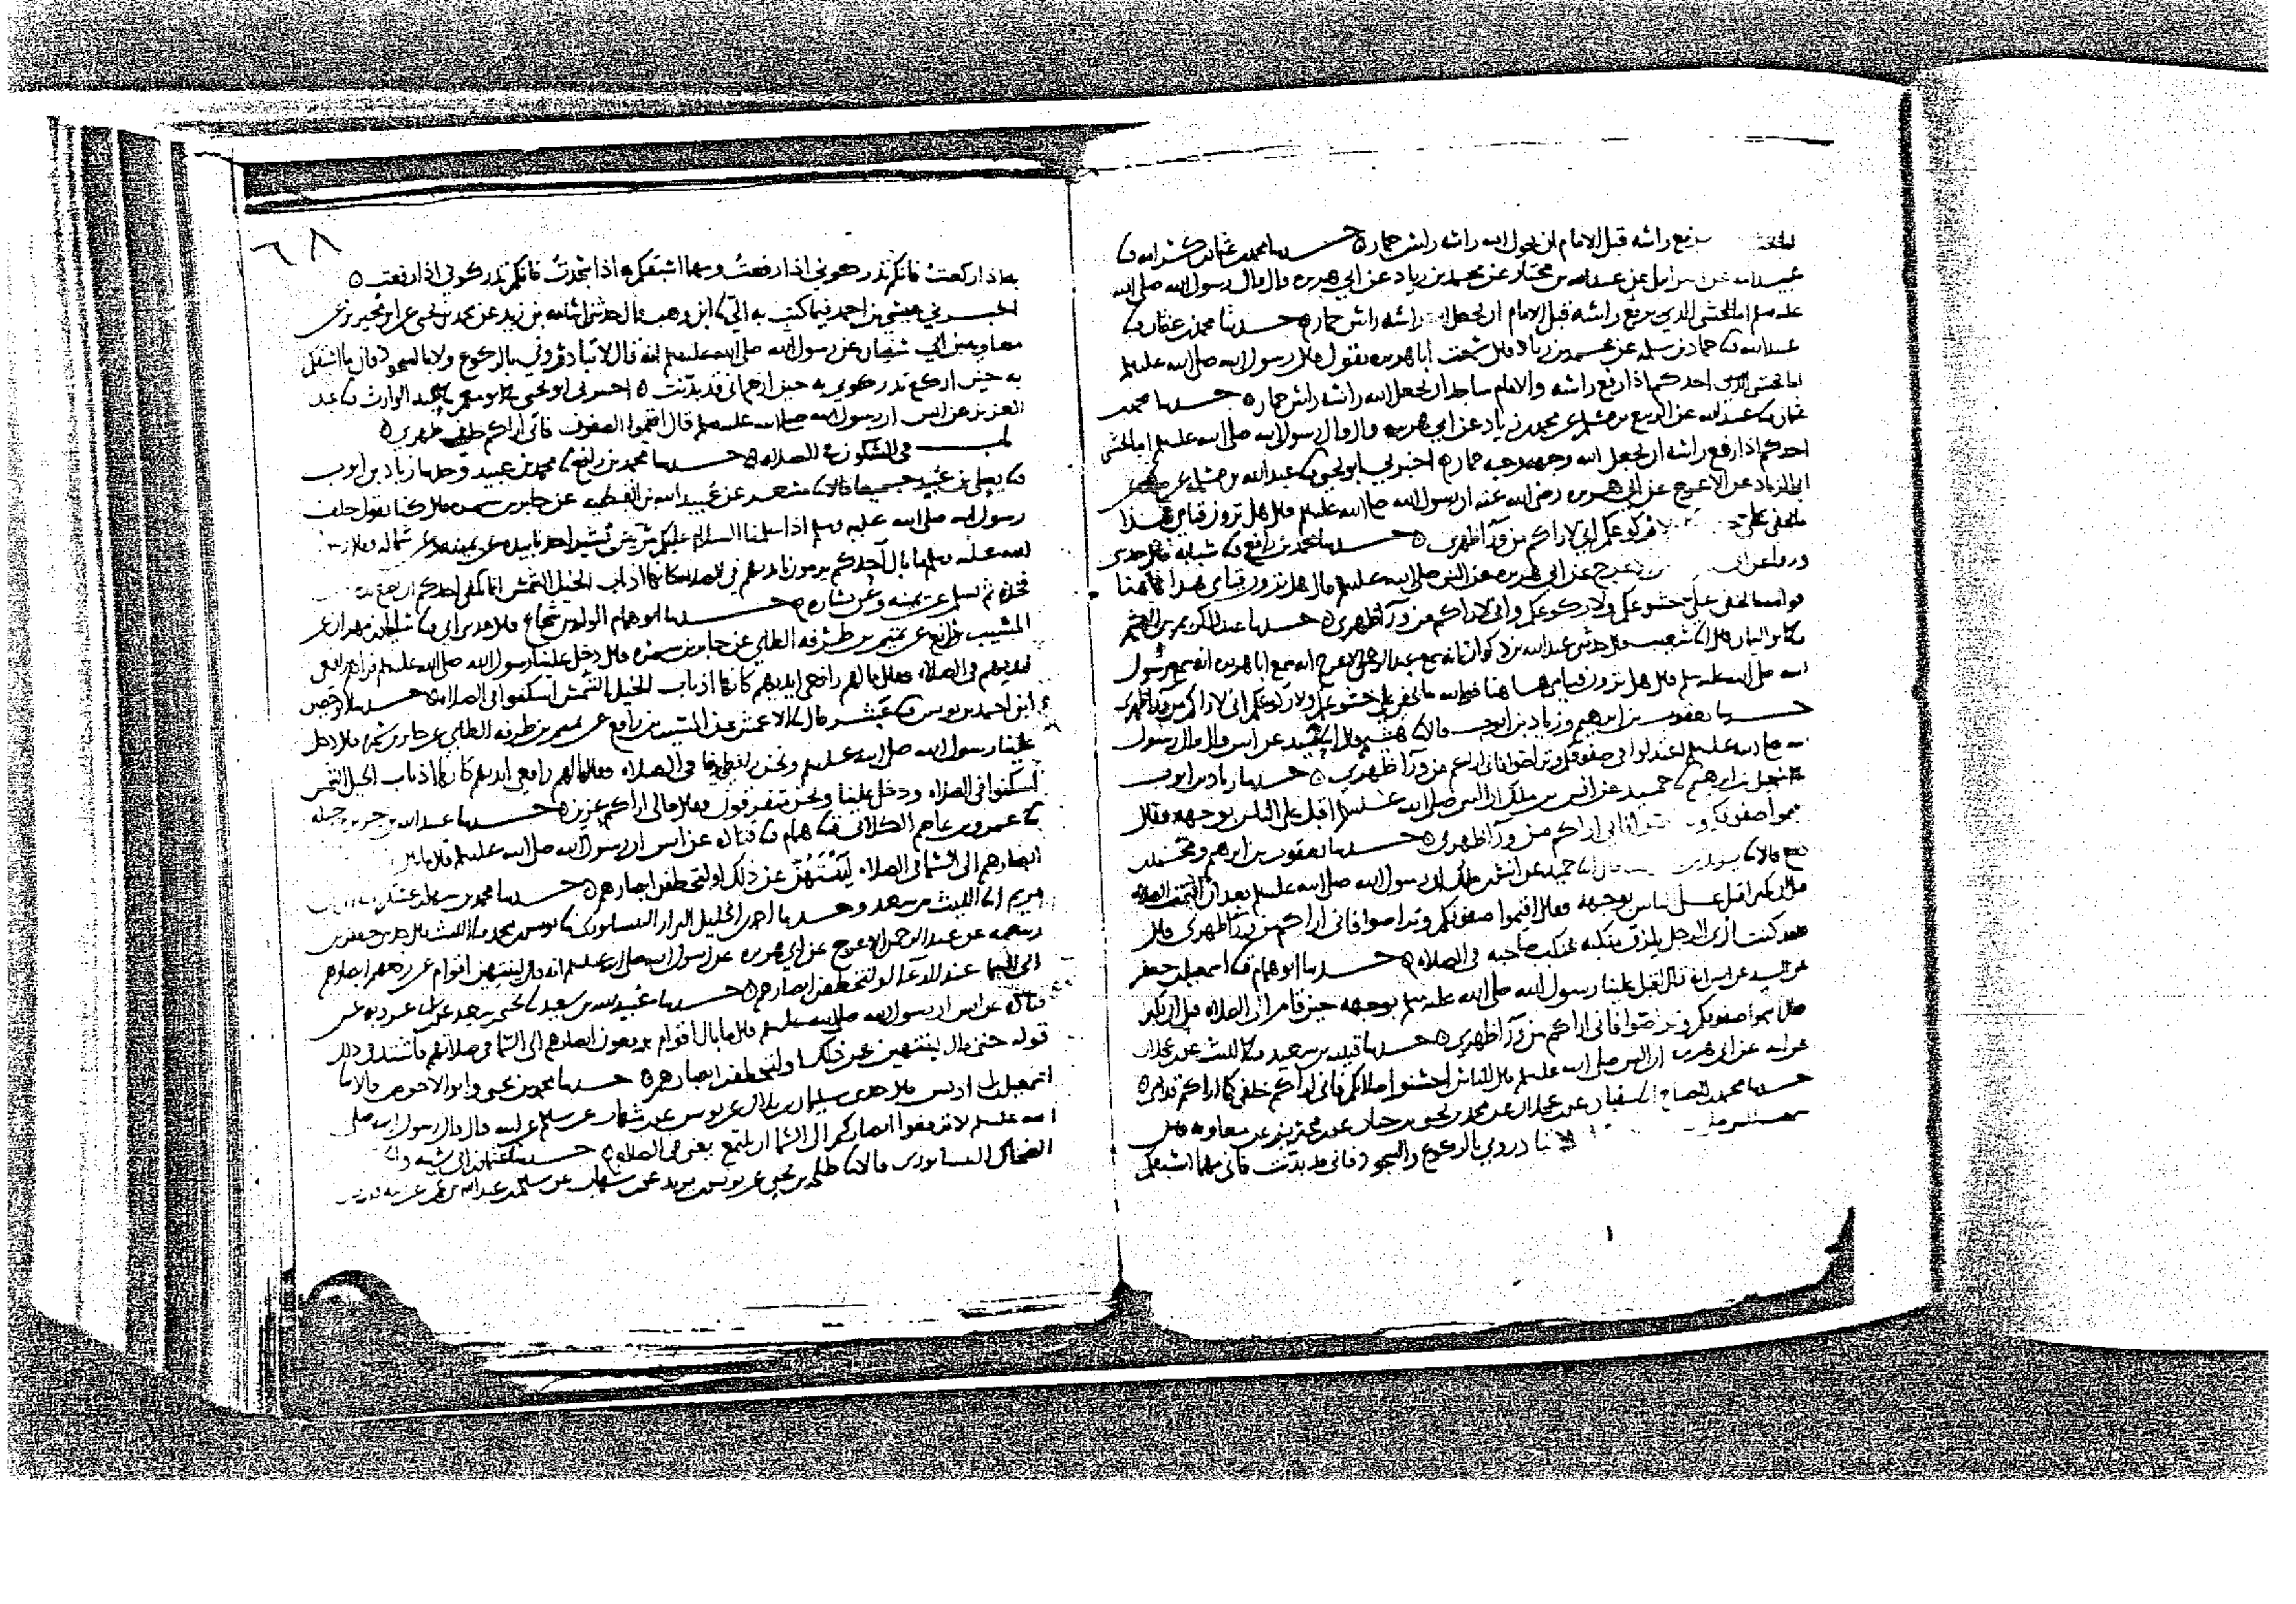 يرفع راسه قبل الامام ان يحول الله راسه راس حمار حدثنا محمد بن عثمان بن كرامه نا
عبيد الله عن عن عبد الله بن مختار عن محمد بن زياد عن ابي هريره قال قال رسول الله صلى الله
عليه وسلم اما يخشى الذي يرفع راسه قبل الامام ان يجعل الله راسه راس حمار حدثنا محمد بن عثمان نا
عبيد الله نا حماد بن سلمه عن محمد بن زياد قال سمعت ابا هريره يقول قال رسول الله صلى الله عليه وسلم
اما يخشى احدكم اذا رفع راسه والامام ساجد ان يجعل الله راسه راس حمار حدثنا محمد
عثمان نا عبيد الله عن الربيع بن مسلم عن محمد بن زياد عن ابي هريره قال قال رسول الله صلى الله عليه وسلم اما يخشى
احدكم اذا رفع راسه ان يجعل الله وجهه وجه حمار اخبرني ابو يحيى نا عبد الله بن
ابي الزناد عن الاعرج عن ابي هريره رضي الله عنه ان رسول الله صلى الله عليه وسلم قال هل ترون قبلتي هذا
ما يخفى علي ركوعكم اني لاراكم من ورا ظهري حدثنا محمد بن رافع نا شبابه قال حدثني
ورقا عن ابي عن الاعرج عن ابي هريره عن النبي صلى الله عليه وسلم قال هل ترون قبلتي هذا هاهنا
فوالله ما يخفى علي خشوعكم ولا ركوعكم واني لاراكم من ورا ظهري حدثنا عبد الكريم بن الهيثم
نا ابو اليمان قال انا شعيب قال حدثني عبد الله بن ذكوان انه سمع عبد الرحمن الاعرج انه سمع ابا هريره انه سمع رسول
الله صلى الله عليه وسلم قال هل ترون قبلتي هاهنا فوالله ما يخفى علي خشوعكم ولا ركوعكم اني لاراكم من ورا ظهري
حدثنا يعقوب بن ابراهيم وزياد بن ايوب قالا نا هشيم قال انا حميد عن انس قال قال رسول
الله صلى الله عليه وسلم اعتدلوا في صفوفكم وتراصوا فاني اراكم من ورا ظهري حدثنا زياد بن ايوب
اسمعيل بن ابراهيم نا حميد عن انس بن ملك ان النبي صلى الله عليه وسلم اقبل على الناس بوجهه فقال
اقيموا صفوفكم وتراصوا فاني اراكم من ورا ظهري حدثنا يعقوب بن ابراهيم ومحمد
قالا نا يزيد بن قال انا حميد عن انس قال ان رسول الله صلى الله عليه وسلم بعد ان اقيمت الصلاه
قبل ان يكبر اقبل على الناس بوجهه فقال اقيموا صفوفكم وتراصوا فاني اراكم من ورا ظهري قال
فقد كنت ارى الرجل يلزق منكبه بمنكب صاحبه في الصلاه حدثنا ابو همام نا اسمعيل بن جعفر
عن حميد عن انس انه قال اقبل علينا رسول الله صلى الله عليه وسلم بوجهه حين قام الى الصلاه قبل ان يكبر
فقال اقيموا صفوفكم وتراصوا فاني اراكم من ورا ظهري حدثنا قتيبه بن سعيد نا الليث عن عجلان
عن ابيه عن ابي هريره ان النبي صلى الله عليه وسلم قال للناس احسنوا صلاتكم فاني اراكم خلفي كما اراكم قدامي
حدثنا محمد بن الصباح انا سفيان عن عجلان عن محمد بن يحيى بن حبان عن محيريز عن معاويه قال
لا تبادروني بالركوع والسجود فاني قد بدنت فاني مهما اسبقكم
٦٨
به اذا ركعت فانكم تدركوني اذا رفعت ومهما اسبقكم به اذا سجدت فانكم تدركوني اذا رفعت
اخبرني عيسى بن احمد فيما كتب به الي نا ابن وهب قال حدثني اسامه بن زيد عن محمد بن يحيى عن ابن محيريز عن
معاويه بن ابي سفيان عن رسول الله صلى الله عليه وسلم انه قال لا تبادروني بالركوع ولا بالسجود فاني ما اسبقكم
به حين اركع تدركوني به حين ارفع اني قد بدنت اخبرني ابو يحيى نا ابو معمر نا عبد الوارث نا عبد
العزيز عن انس ان رسول الله صلى الله عليه وسلم قال اقيموا الصفوف فاني اراكم خلف ظهري
باب في السكون في الصلاه حدثنا محمد بن رافع نا محمد بن عبيد وحدثنا زياد بن ايوب
نا يعلى بن عبيد جميعا قالا نا مسعر عن عبيد الله بن القبطيه عن جابر بن سمره قال كنا نقول خلف
رسول الله صلى الله عليه وسلم اذا سلمنا السلام عليكم يشير احدنا بيده عن يمينه وعن شماله فقال رسول
الله صلى الله عليه وسلم ما بال احدكم يرمون بايديهم في الصلاه كانها اذناب الخيل الشمس انما يكفي احدكم ان يضع يده
فخذه ثم يسلم عن يمينه وعن يساره حدثنا ابو همام الوليد بن شجاع قال حدثني ابي نا سليمان بن مهران عن
المسيب بن رافع عن تميم بن طرفه الطائي عن جابر بن سمره قال دخل علينا رسول الله صلى الله عليه وسلم فراهم رافعي
ايديهم في الصلاه فقال ما لهم رافعي ايديهم كانها اذناب الخيل الشمس اسكنوا في الصلاه حدثنا ابو حصين
ابن احمد بن يونس نا عبثر قال نا الاعمش عن المسيب بن رافع عن تميم بن طرفه الطائي عن جابر بن سمره قال دخل
علينا رسول الله صلى الله عليه وسلم ونحن رافعي ايدينا في الصلاه فقال ما لهم رافعي ايديهم كانها اذناب الخيل الشمس
اسكنوا في الصلاه ودخل علينا ونحن متفرقون فقال مالي اراكم عزين حدثنا عبد الله بن جرير بن جبله
نا عمرو بن عاصم الكلابي نا همام نا قتاده عن انس ان رسول الله صلى الله عليه وسلم قال ما بال
ابصارهم الى السما في الصلاه لينتهن عن ذلك او لتخطفن ابصارهم حدثنا محمد بن سهل بن عسكر نا
مريم انا الليث بن سعد وحدثنا احمد بن الخليل البزار النيسابوري نا يونس بن محمد نا الليث قال حدثني جعفر بن
ربيعه عن عبد الرحمن الاعرج عن ابي هريره عن رسول الله صلى الله عليه وسلم انه قال لينتهين اقوام عن رفعهم ابصارهم
الى السما عند الدعا او لتخطفن ابصارهم حدثنا عبيد الله بن سعيد نا يحيى بن سعيد عن عروبه عن
قتاده عن انس ان رسول الله صلى الله عليه وسلم قال ما بال اقوام يرفعون ابصارهم الى السما في صلاتهم فاشتد في ذلك
قوله حتى قال لينتهين عن ذلك او لتخطفن ابصارهم حدثنا محمد بن يحيى وابو الاحوص قالا نا
اسمعيل بن اويس قال حدثني سليمان بن بلال عن يونس عن شهاب عن سالم عن ابيه قال قال رسول الله صلى
الله عليه وسلم لا ترفعوا ابصاركم الى السما ان يلتمع يعني في الصلاه حدثنا عثمان بن ابي شيبه و
الضحاك النيسابوري قالا نا طلحه بن يحيى عن يونس بن يزيد عن شهاب عن سالم بن عبد الله بن عمر عن ابيه